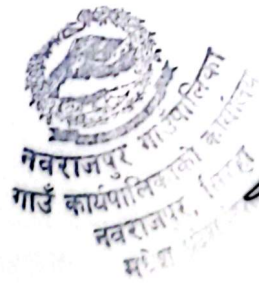 नवराजपुर गाउँपालिका
गाउँ कार्यपालिकाको कार्यालय
नवराजपुर, सिरहा
मधेश प्रदेश